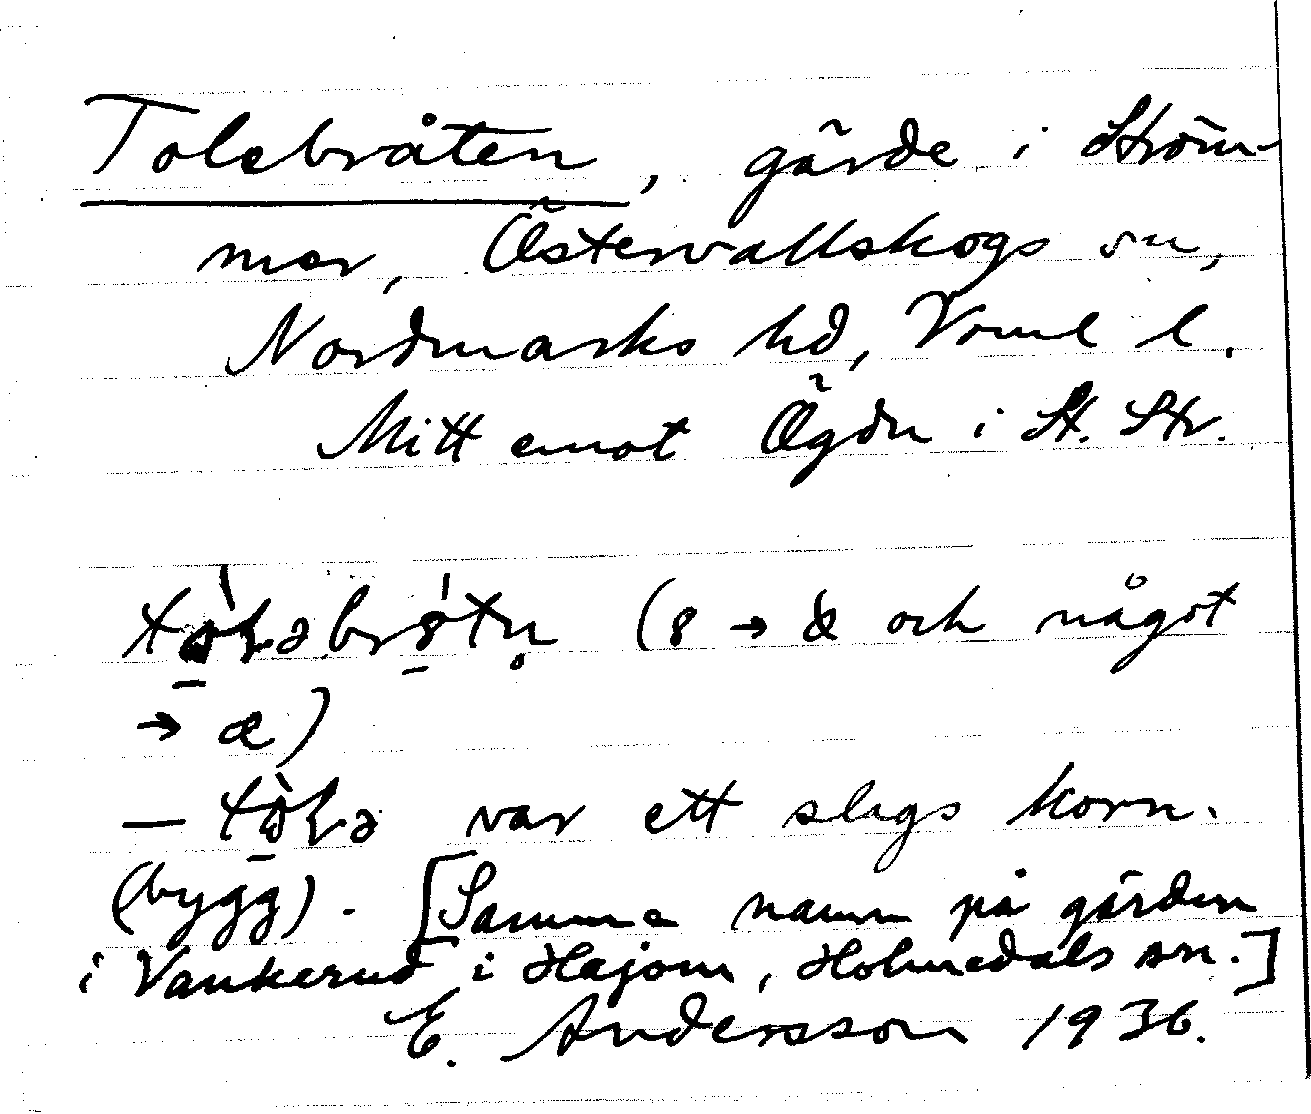 Tolebråten, gärde i Ström-
mer, Östervallskogs sn,
Nordmarks hd, Vrml l.
Mitt emot Ögdn i St. Str.
(8 → och något
→ æ)
— var ett slags korn.
(bygg). [Samma namn på gärden
i Vankerud i Häjom, Holmedals sn.]
E. Andersson 1936.